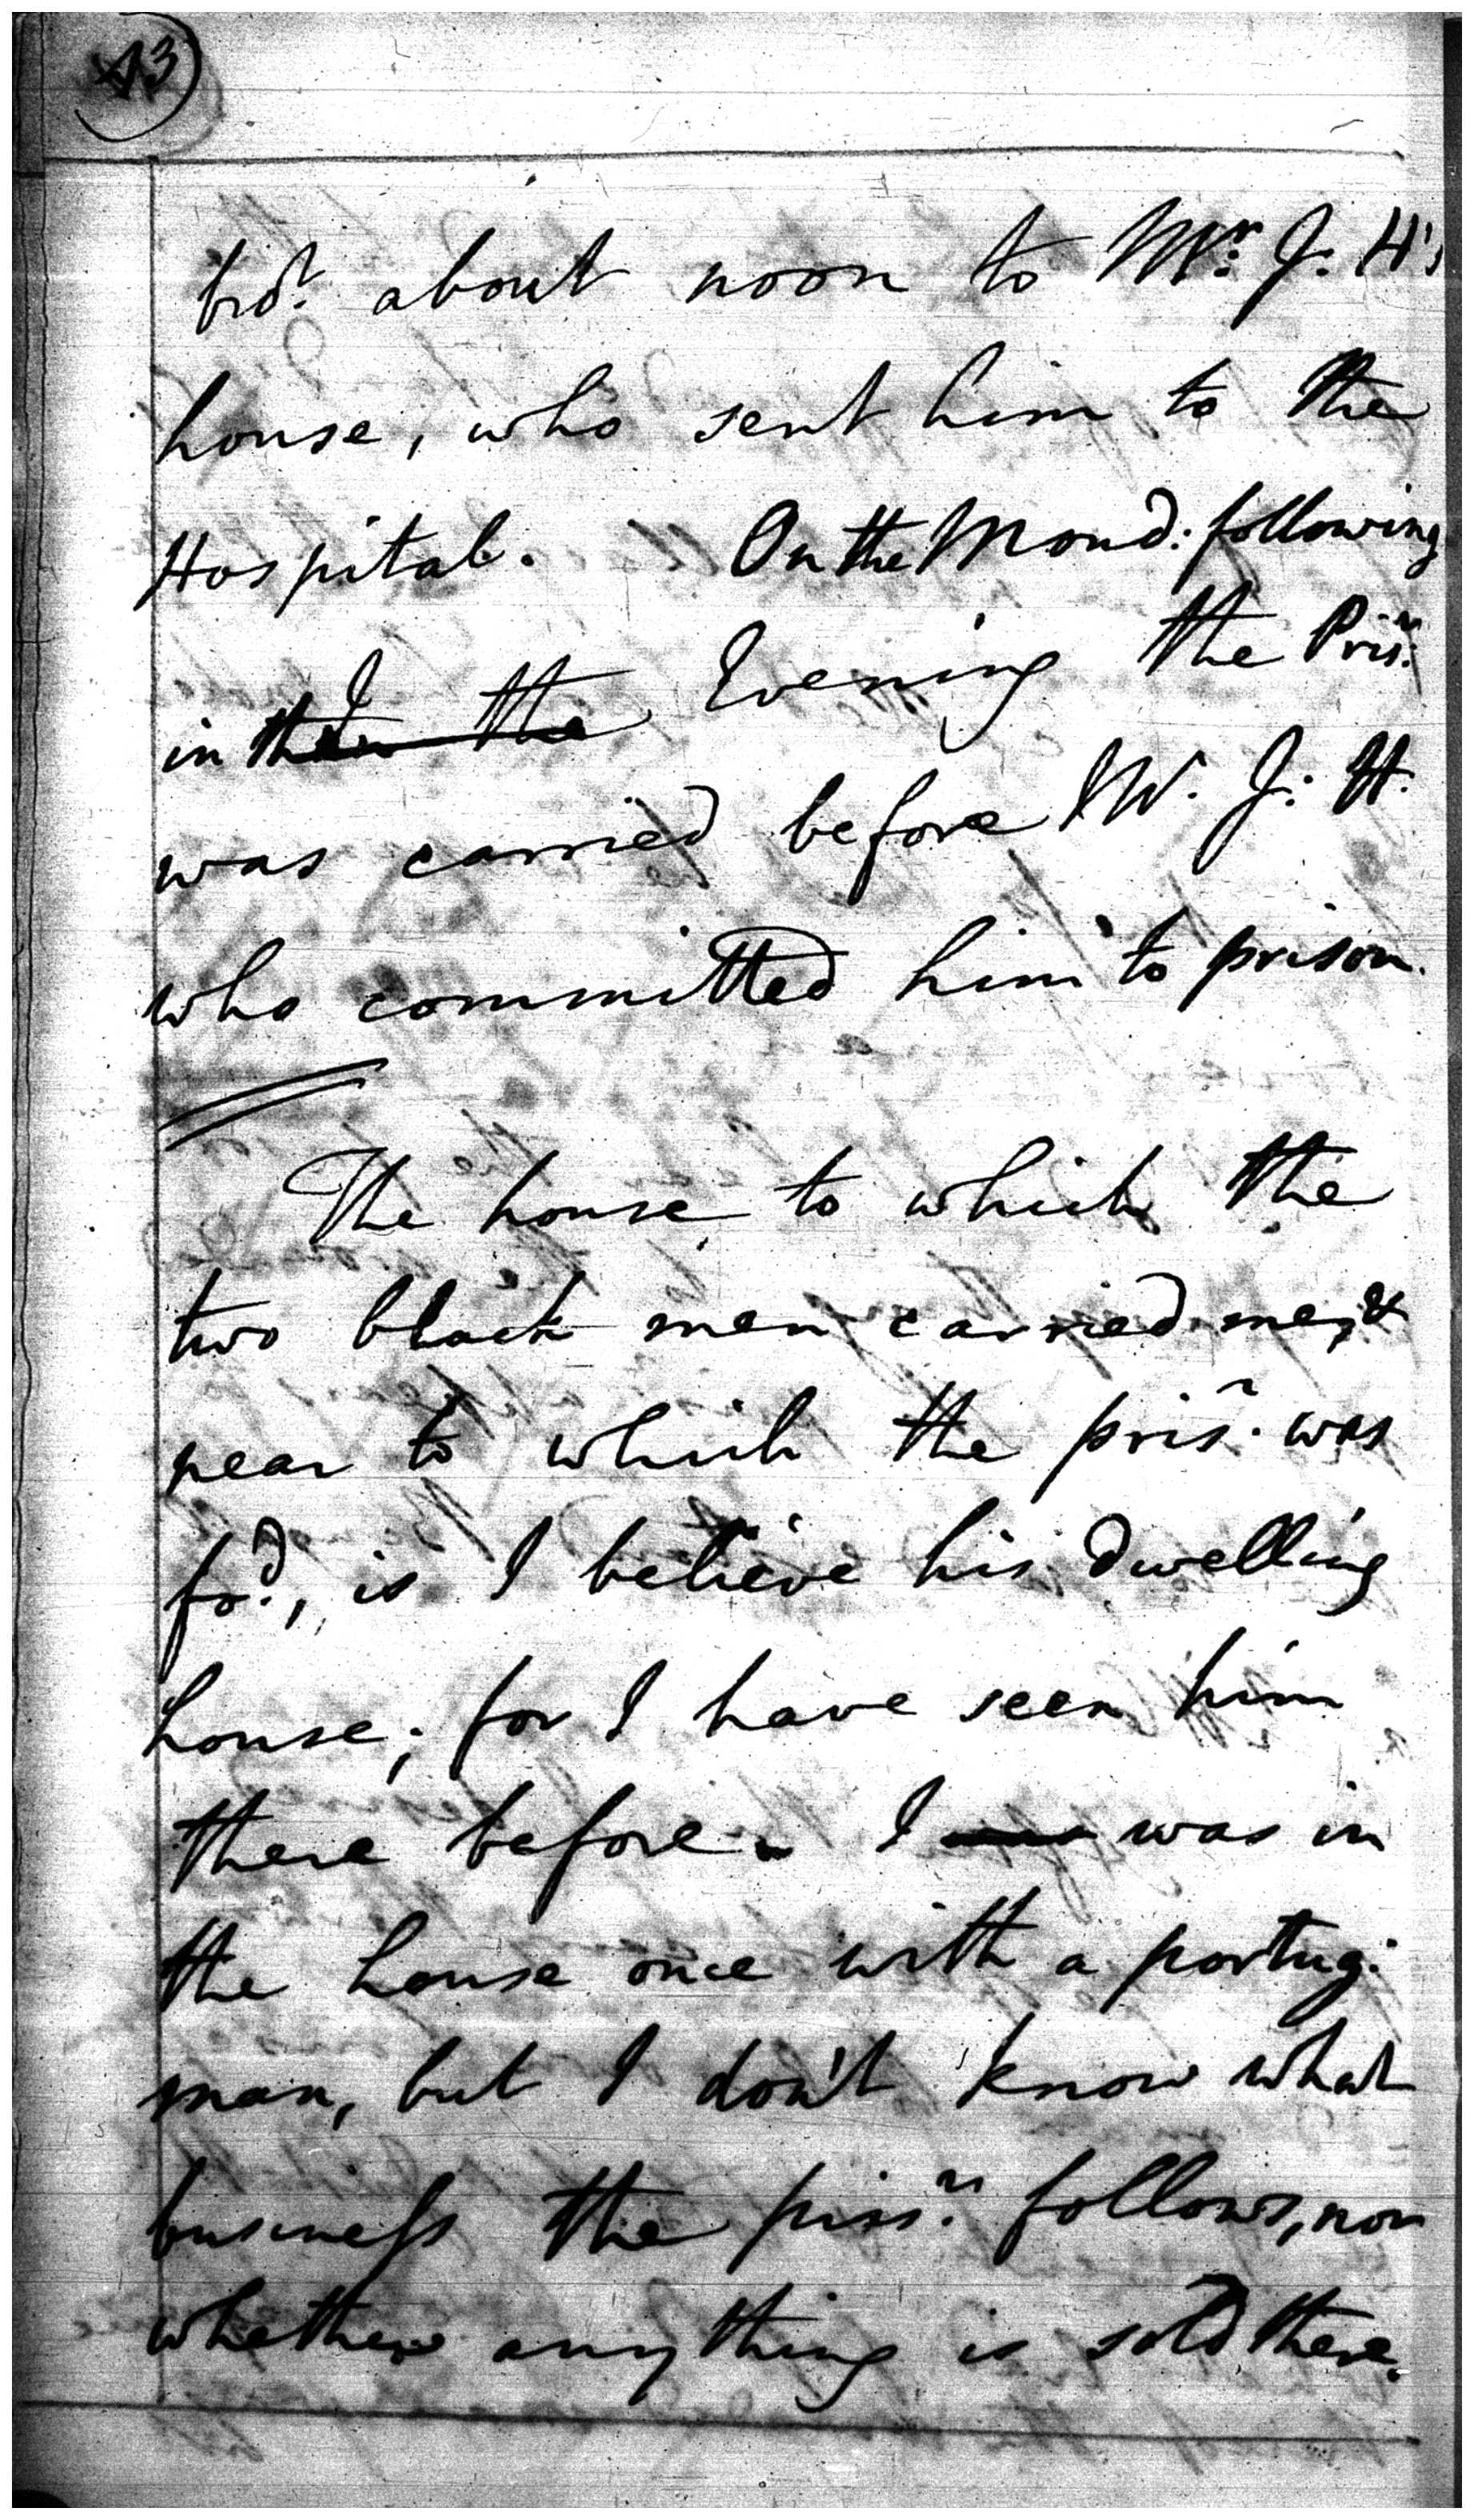 43
bro.t about noon to Mr. J. H's
house, who sent him to the
Hospital. On the Mond: following
in the Evening the Pris.r
was carried before Mr. J. H.
who committed him to prison.
The house to which the
two black men carried me, &
near to which the pris.r was
fo.d, is I believe his dwelling
house; for I have seen him
there before. I was in
the house once with a portug.
man, but I don't know what
business the pris.r follows, nor
whether any thing is sold there.